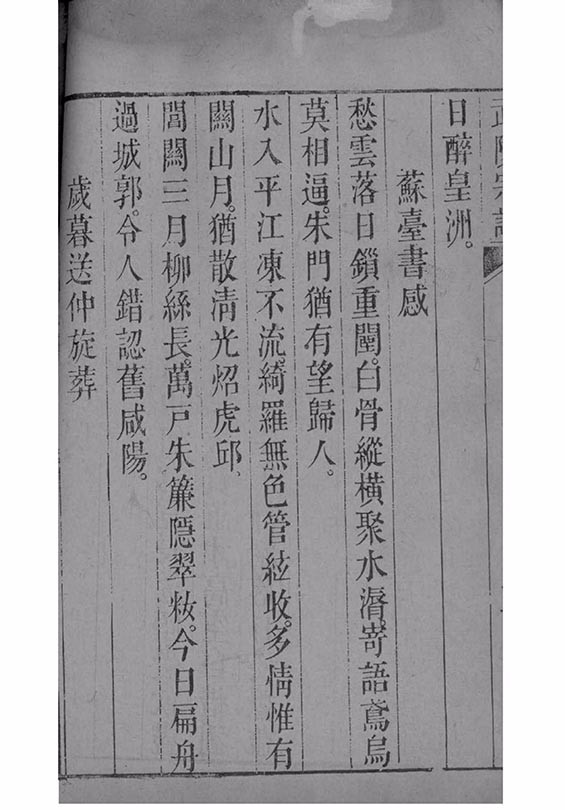 日醉皇洲。
蘇臺書感
愁雲落日鎖重闉。白骨縱橫聚水濱。寄語鳶烏
莫相逼。朱門猶有望歸人。
水入平江凍不流。綺羅無色管絃收。多情惟有
關山月。猶散清光炤虎邱。
閶闕三月柳絲長。萬戸朱簾隱翠妝。今日扁舟
過城郭。令人錯認舊咸陽。
歲暮送仲旋葬